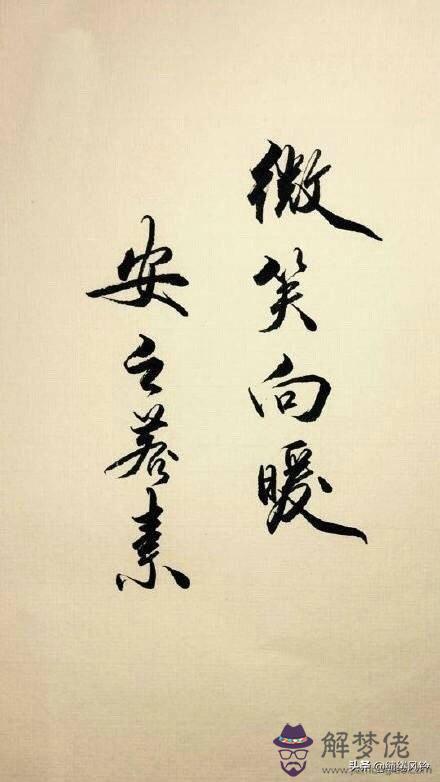 微笑向暖
安之若素
解梦佬